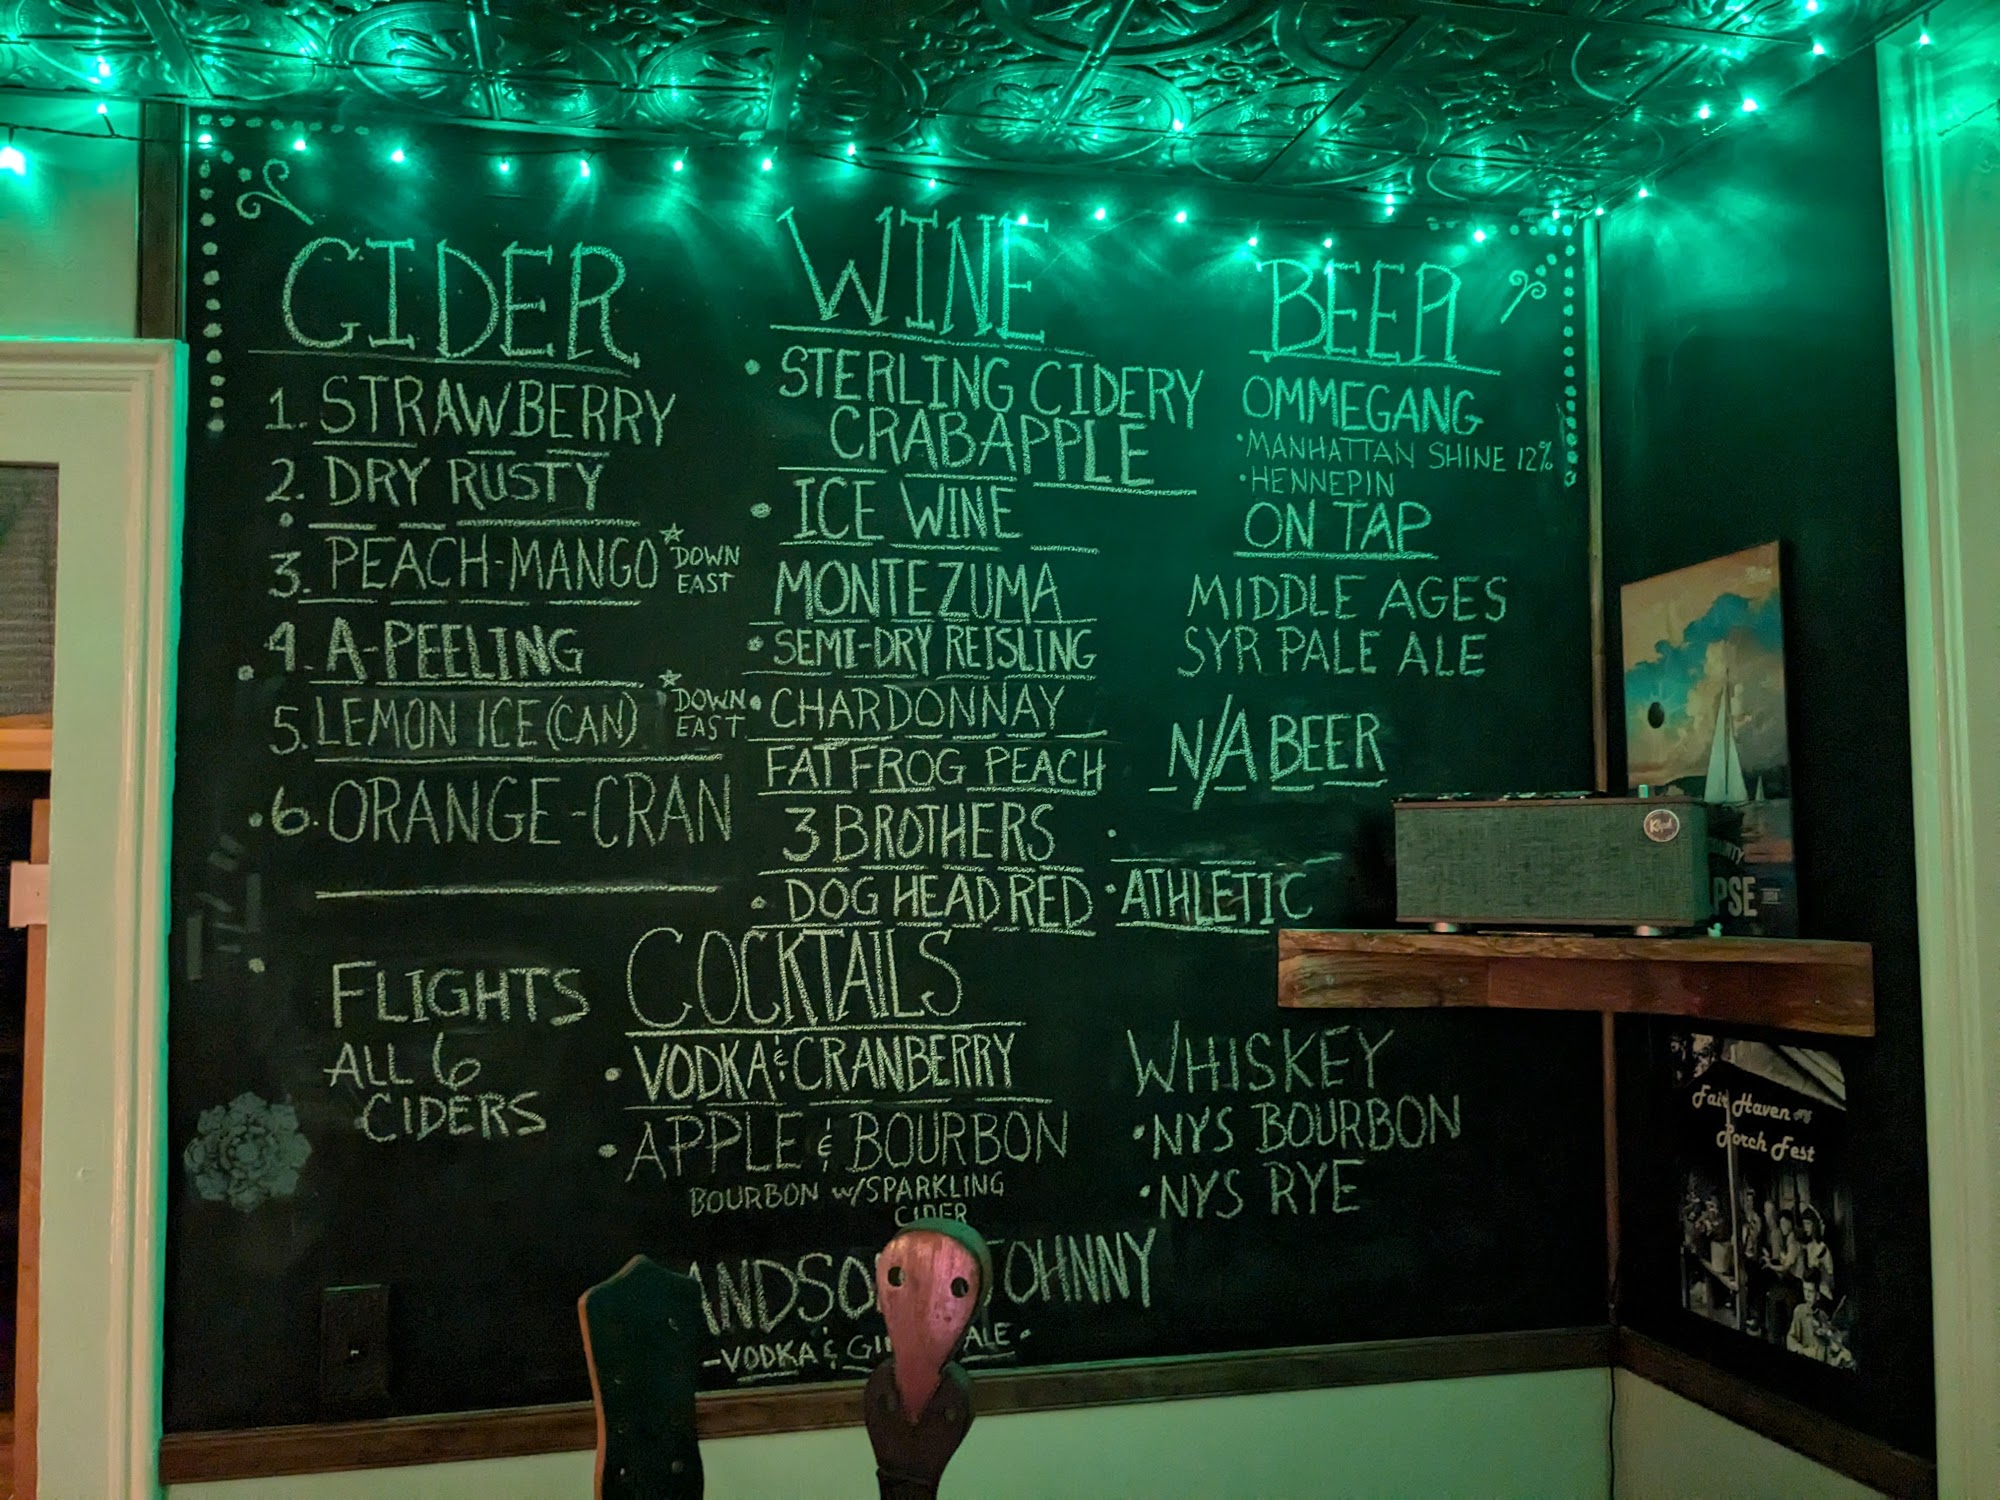 CIDER
1. STRAWBERRY
2. DRY RUSTY
3. PEACH-MANGO
DOWN
EAST
4. A-PEELING
5. LEMON ICE (CAN)
DOWN
EAST
6. ORANGE-CRAN
FLIGHTS
ALL 6
CIDERS
WINE
• STERLING CIDERY
CRABAPPLE
• ICE WINE
MONTEZUMA
• SEMI-DRY REISLING
• CHARDONNAY
FAT FROG PEACH
3 BROTHERS
• DOG HEAD RED
COCKTAILS
• VODKA & CRANBERRY
• APPLE & BOURBON
BOURBON w/SPARKLING
CIDER
JOHNNY
-VODKA & ALE
BEER
OMMEGANG
• MANHATTAN SHINE 12%
• HENNEPIN
ON TAP
MIDDLE AGES
SYR PALE ALE
N/A BEER
• ATHLETIC
WHISKEY
• NYS BOURBON
• NYS RYE
Klipsch
PSE
Fair Haven NY
Porch Fest